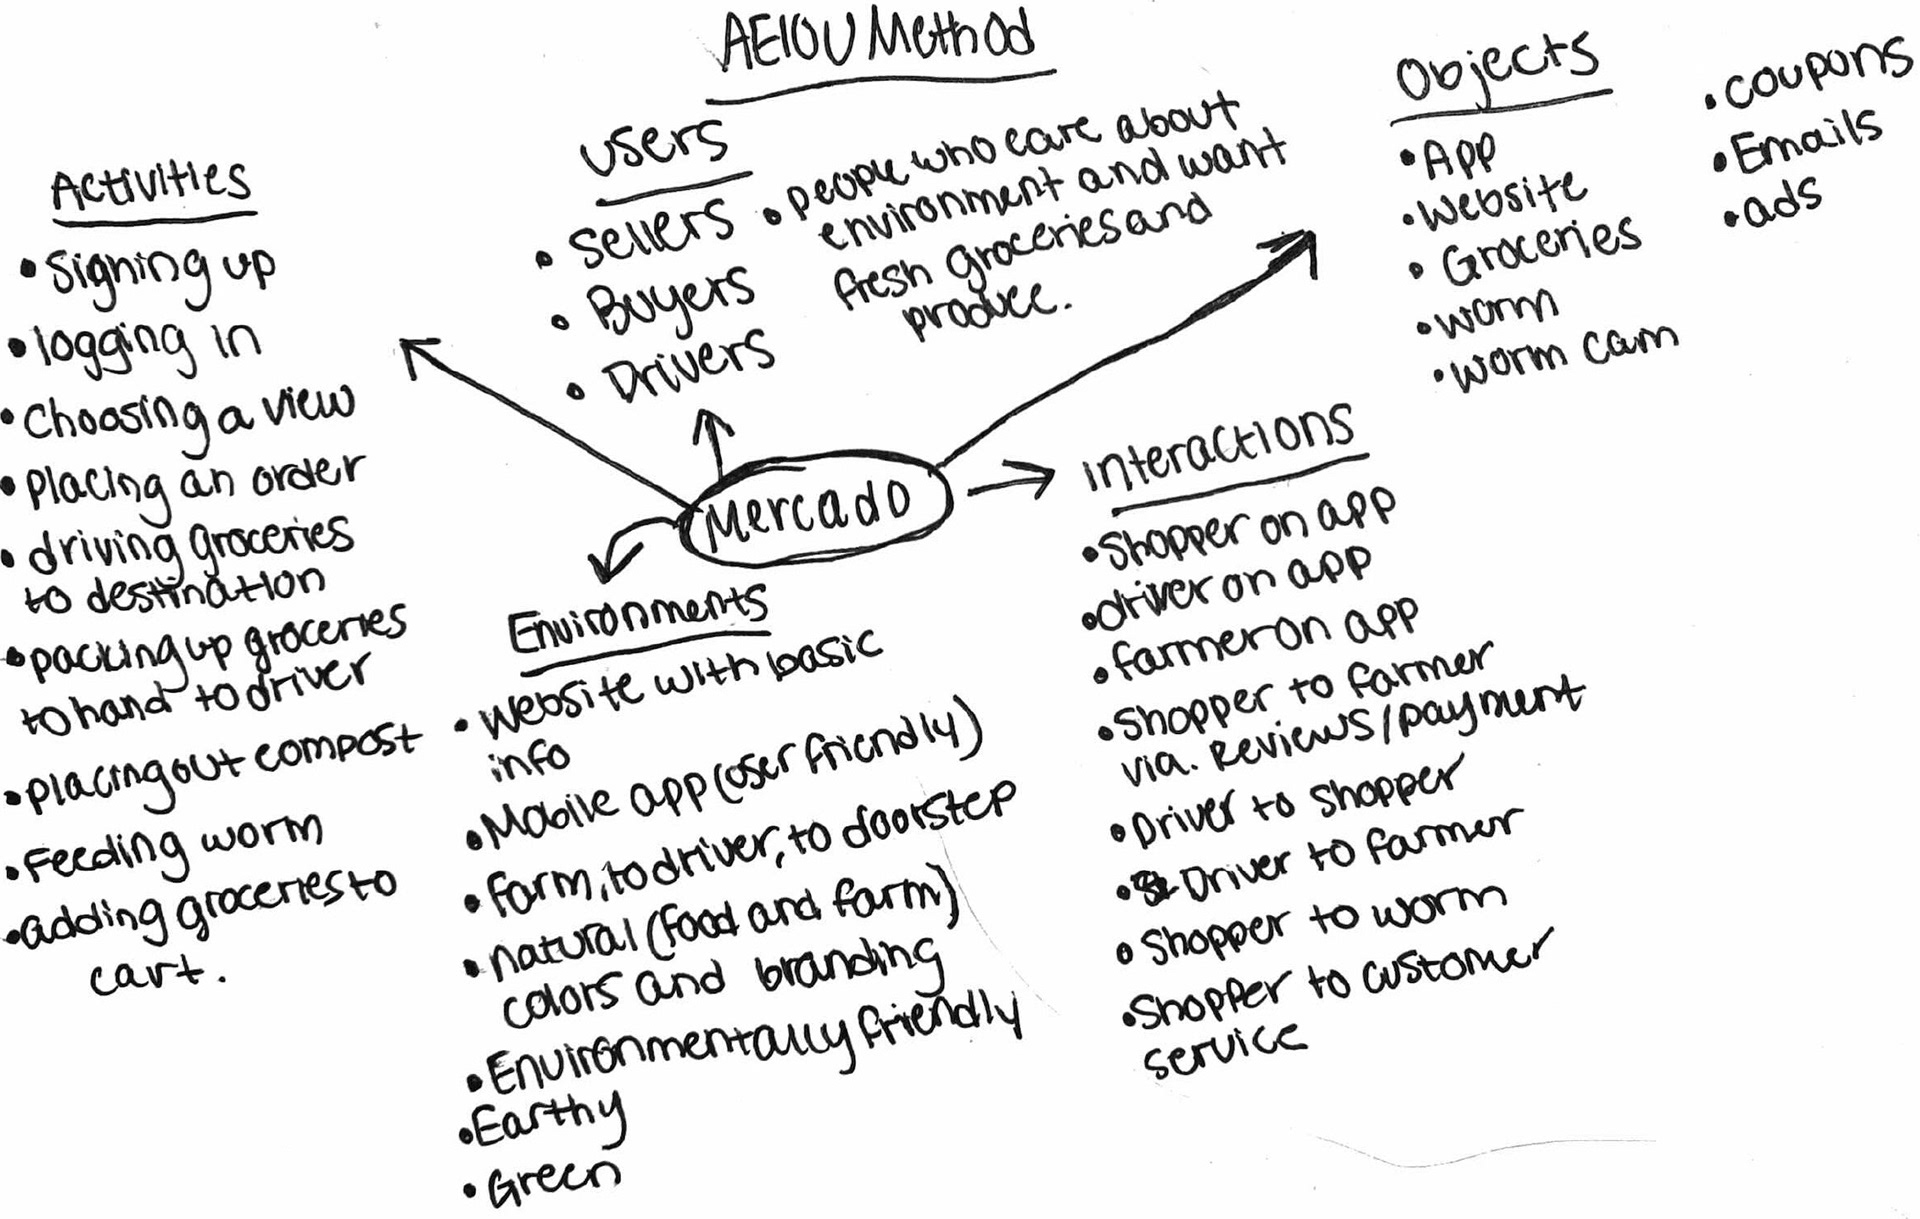 AEIOU Method
Activities
• Signing up
• logging in
• Choosing a view
• placing an order
• driving groceries
to destination
• packing up groceries
to hand to driver
• placing out compost
• Feeding worm
• adding groceries to
cart.
Users
• Sellers
• Buyers
• Drivers
• people who care about
environment and want
fresh groceries and
produce.
Objects
• App
• Website
• Groceries
• worm
• worm cam
• coupons
• Emails
• ads
Mercado
Environments
• Website with basic
info
• Mobile app (user friendly)
• farm, to driver, to doorstep
• natural (food and farm)
colors and branding
• Environmentally friendly
• Earthy
• Green
Interactions
• Shopper on app
• driver on app
• farmer on app
• Shopper to farmer
via. Reviews/payment
• Driver to shopper
• Driver to farmer
• Shopper to worm
• Shopper to customer
service